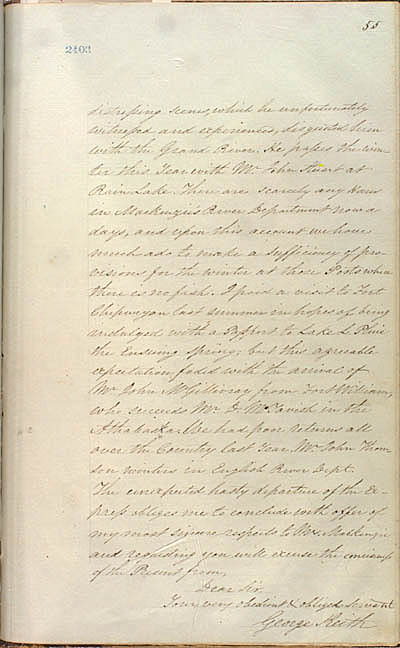 55
2403
distressing scenes, which he unfortunately
witnessed and experiences, disgusted him
with the Grand River. He passes the win-
ter this Year with Mr. John Stuart at
Rain Lake. There are scarcely any
in MacKenzie's River Department now a
days, and upon this account we have
much ado to make a sufficiency of pro-
visions for the winter at those Posts where
there is no fish. I paid a visit to Fort
Chipewyan last summer in hopes of being
indulged with a Passport to Lake L. Pluie
the Ensuing Spring, but this agreeable
expectation faded with the arrival of
Mr. John McGillivray from Fort William,
who succeeds Mr. D. McTavish in the
Athabaska. We had poor returns all
over the Country last Year. Mr. John Thom-
son winters in English River Dept.
The unexpected hasty departure of the Ex-
press obliges me to conclude with offer of
my most sincere respects to Mrs. MacKenzie
and requesting you will excuse the
of the Present from,
Dear Sir,
Your very obedient & obliged servant
George Keith